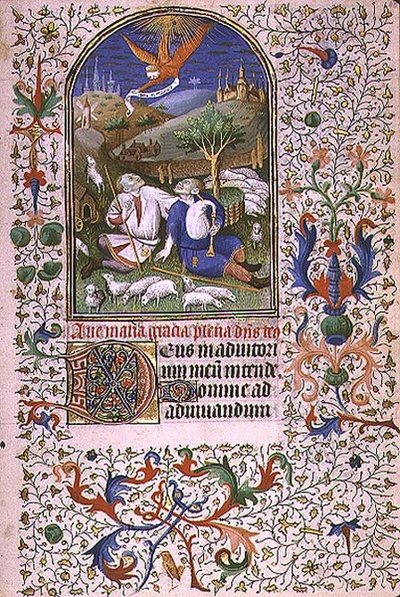 Aue maria gracia plena dn̄s
Deus in adiutori
um meū intende
Domine ad
adiuuandum